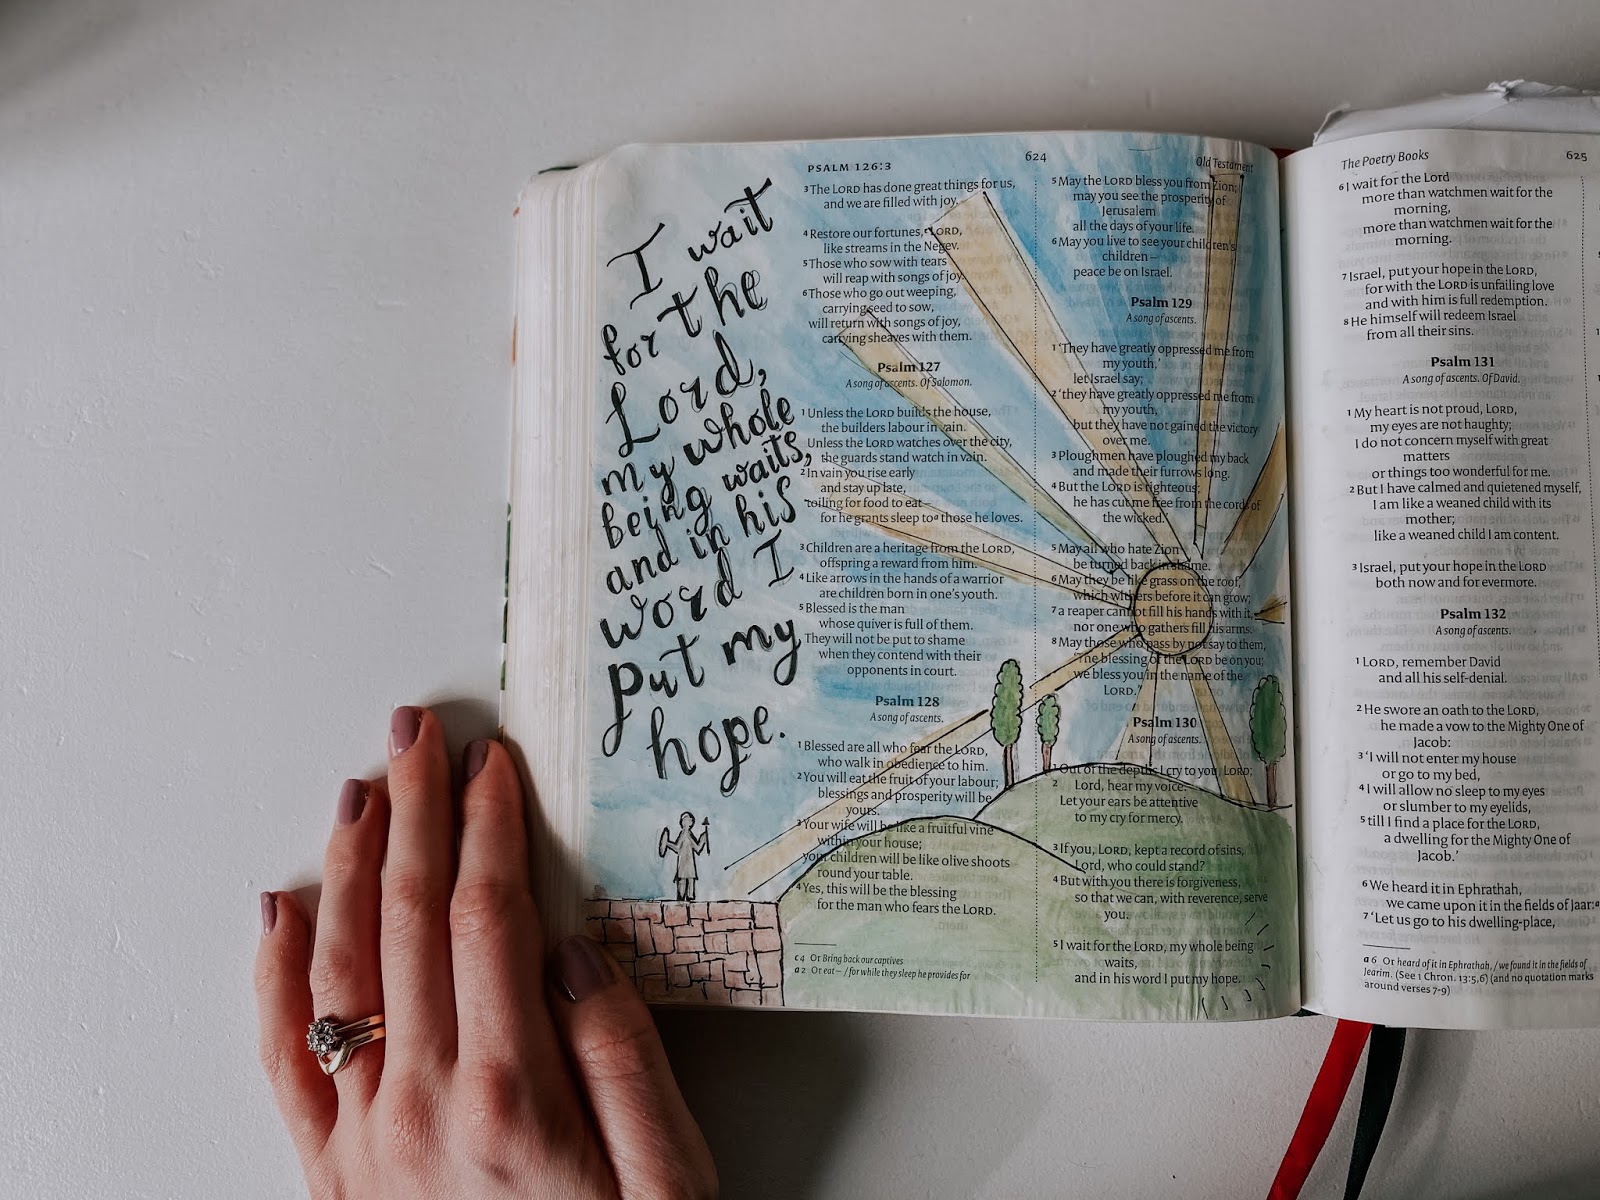 I wait
for the
Lord,
my whole
being waits,
and in his
word I
put my
hope.
PSALM 126:3
624
Old Testament
3 The LORD has done great things for us,
and we are filled with joy.
4 Restore our fortunes, LORD,
like streams in the Negev.
5 Those who sow with tears
will reap with songs of joy.
6 Those who go out weeping,
carrying seed to sow,
will return with songs of joy,
carrying sheaves with them.
Psalm 127
A song of ascents. Of Solomon.
1 Unless the LORD builds the house,
the builders labour in vain.
Unless the LORD watches over the city,
the guards stand watch in vain.
2 In vain you rise early
and stay up late,
toiling for food to eat –
for he grants sleep to a those he loves.
3 Children are a heritage from the LORD,
offspring a reward from him.
4 Like arrows in the hands of a warrior
are children born in one's youth.
5 Blessed is the man
whose quiver is full of them.
They will not be put to shame
when they contend with their
opponents in court.
Psalm 128
A song of ascents.
1 Blessed are all who fear the LORD,
who walk in obedience to him.
2 You will eat the fruit of your labour;
blessings and prosperity will be
yours.
3 Your wife will be like a fruitful vine
within your house;
your children will be like olive shoots
round your table.
4 Yes, this will be the blessing
for the man who fears the LORD.
c 4 Or Bring back our captives
a 2 Or eat – / for while they sleep he provides for
5 May the LORD bless you from Zion;
may you see the prosperity of
Jerusalem
all the days of your life.
6 May you live to see your children's
children –
peace be on Israel.
Psalm 129
A song of ascents.
1 'They have greatly oppressed me from
my youth,'
let Israel say;
2 'they have greatly oppressed me from
my youth,
but they have not gained the victory
over me.
3 Ploughmen have ploughed my back
and made their furrows long.
4 But the LORD is righteous;
he has cut me free from the cords of
the wicked.'
5 May all who hate Zion
be turned back in shame.
6 May they be like grass on the roof,
which withers before it can grow;
7 a reaper cannot fill his hands with it,
nor one who gathers fill his arms.
8 May those who pass by not say to them,
'The blessing of the LORD be on you;
we bless you in the name of the
LORD.'
Psalm 130
A song of ascents.
1 Out of the depths I cry to you, LORD;
2 Lord, hear my voice.
Let your ears be attentive
to my cry for mercy.
3 If you, LORD, kept a record of sins,
Lord, who could stand?
4 But with you there is forgiveness,
so that we can, with reverence, serve
you.
5 I wait for the LORD, my whole being
waits,
and in his word I put my hope.
The Poetry Books
625
6 I wait for the Lord
more than watchmen wait for the
morning,
more than watchmen wait for the
morning.
7 Israel, put your hope in the LORD,
for with the LORD is unfailing love
and with him is full redemption.
8 He himself will redeem Israel
from all their sins.
Psalm 131
A song of ascents. Of David.
1 My heart is not proud, LORD,
my eyes are not haughty;
I do not concern myself with great
matters
or things too wonderful for me.
2 But I have calmed and quietened myself,
I am like a weaned child with its
mother;
like a weaned child I am content.
3 Israel, put your hope in the LORD
both now and for evermore.
Psalm 132
A song of ascents.
1 LORD, remember David
and all his self-denial.
2 He swore an oath to the LORD,
he made a vow to the Mighty One of
Jacob:
3 'I will not enter my house
or go to my bed,
4 I will allow no sleep to my eyes
or slumber to my eyelids,
5 till I find a place for the LORD,
a dwelling for the Mighty One of
Jacob.'
6 We heard it in Ephrathah,
we came upon it in the fields of Jaar: a
7 'Let us go to his dwelling-place,
a 6 Or heard of it in Ephrathah, / we found it in the fields of
Jearim. (See 1 Chron. 13:5,6) (and no quotation marks
around verses 7-9)